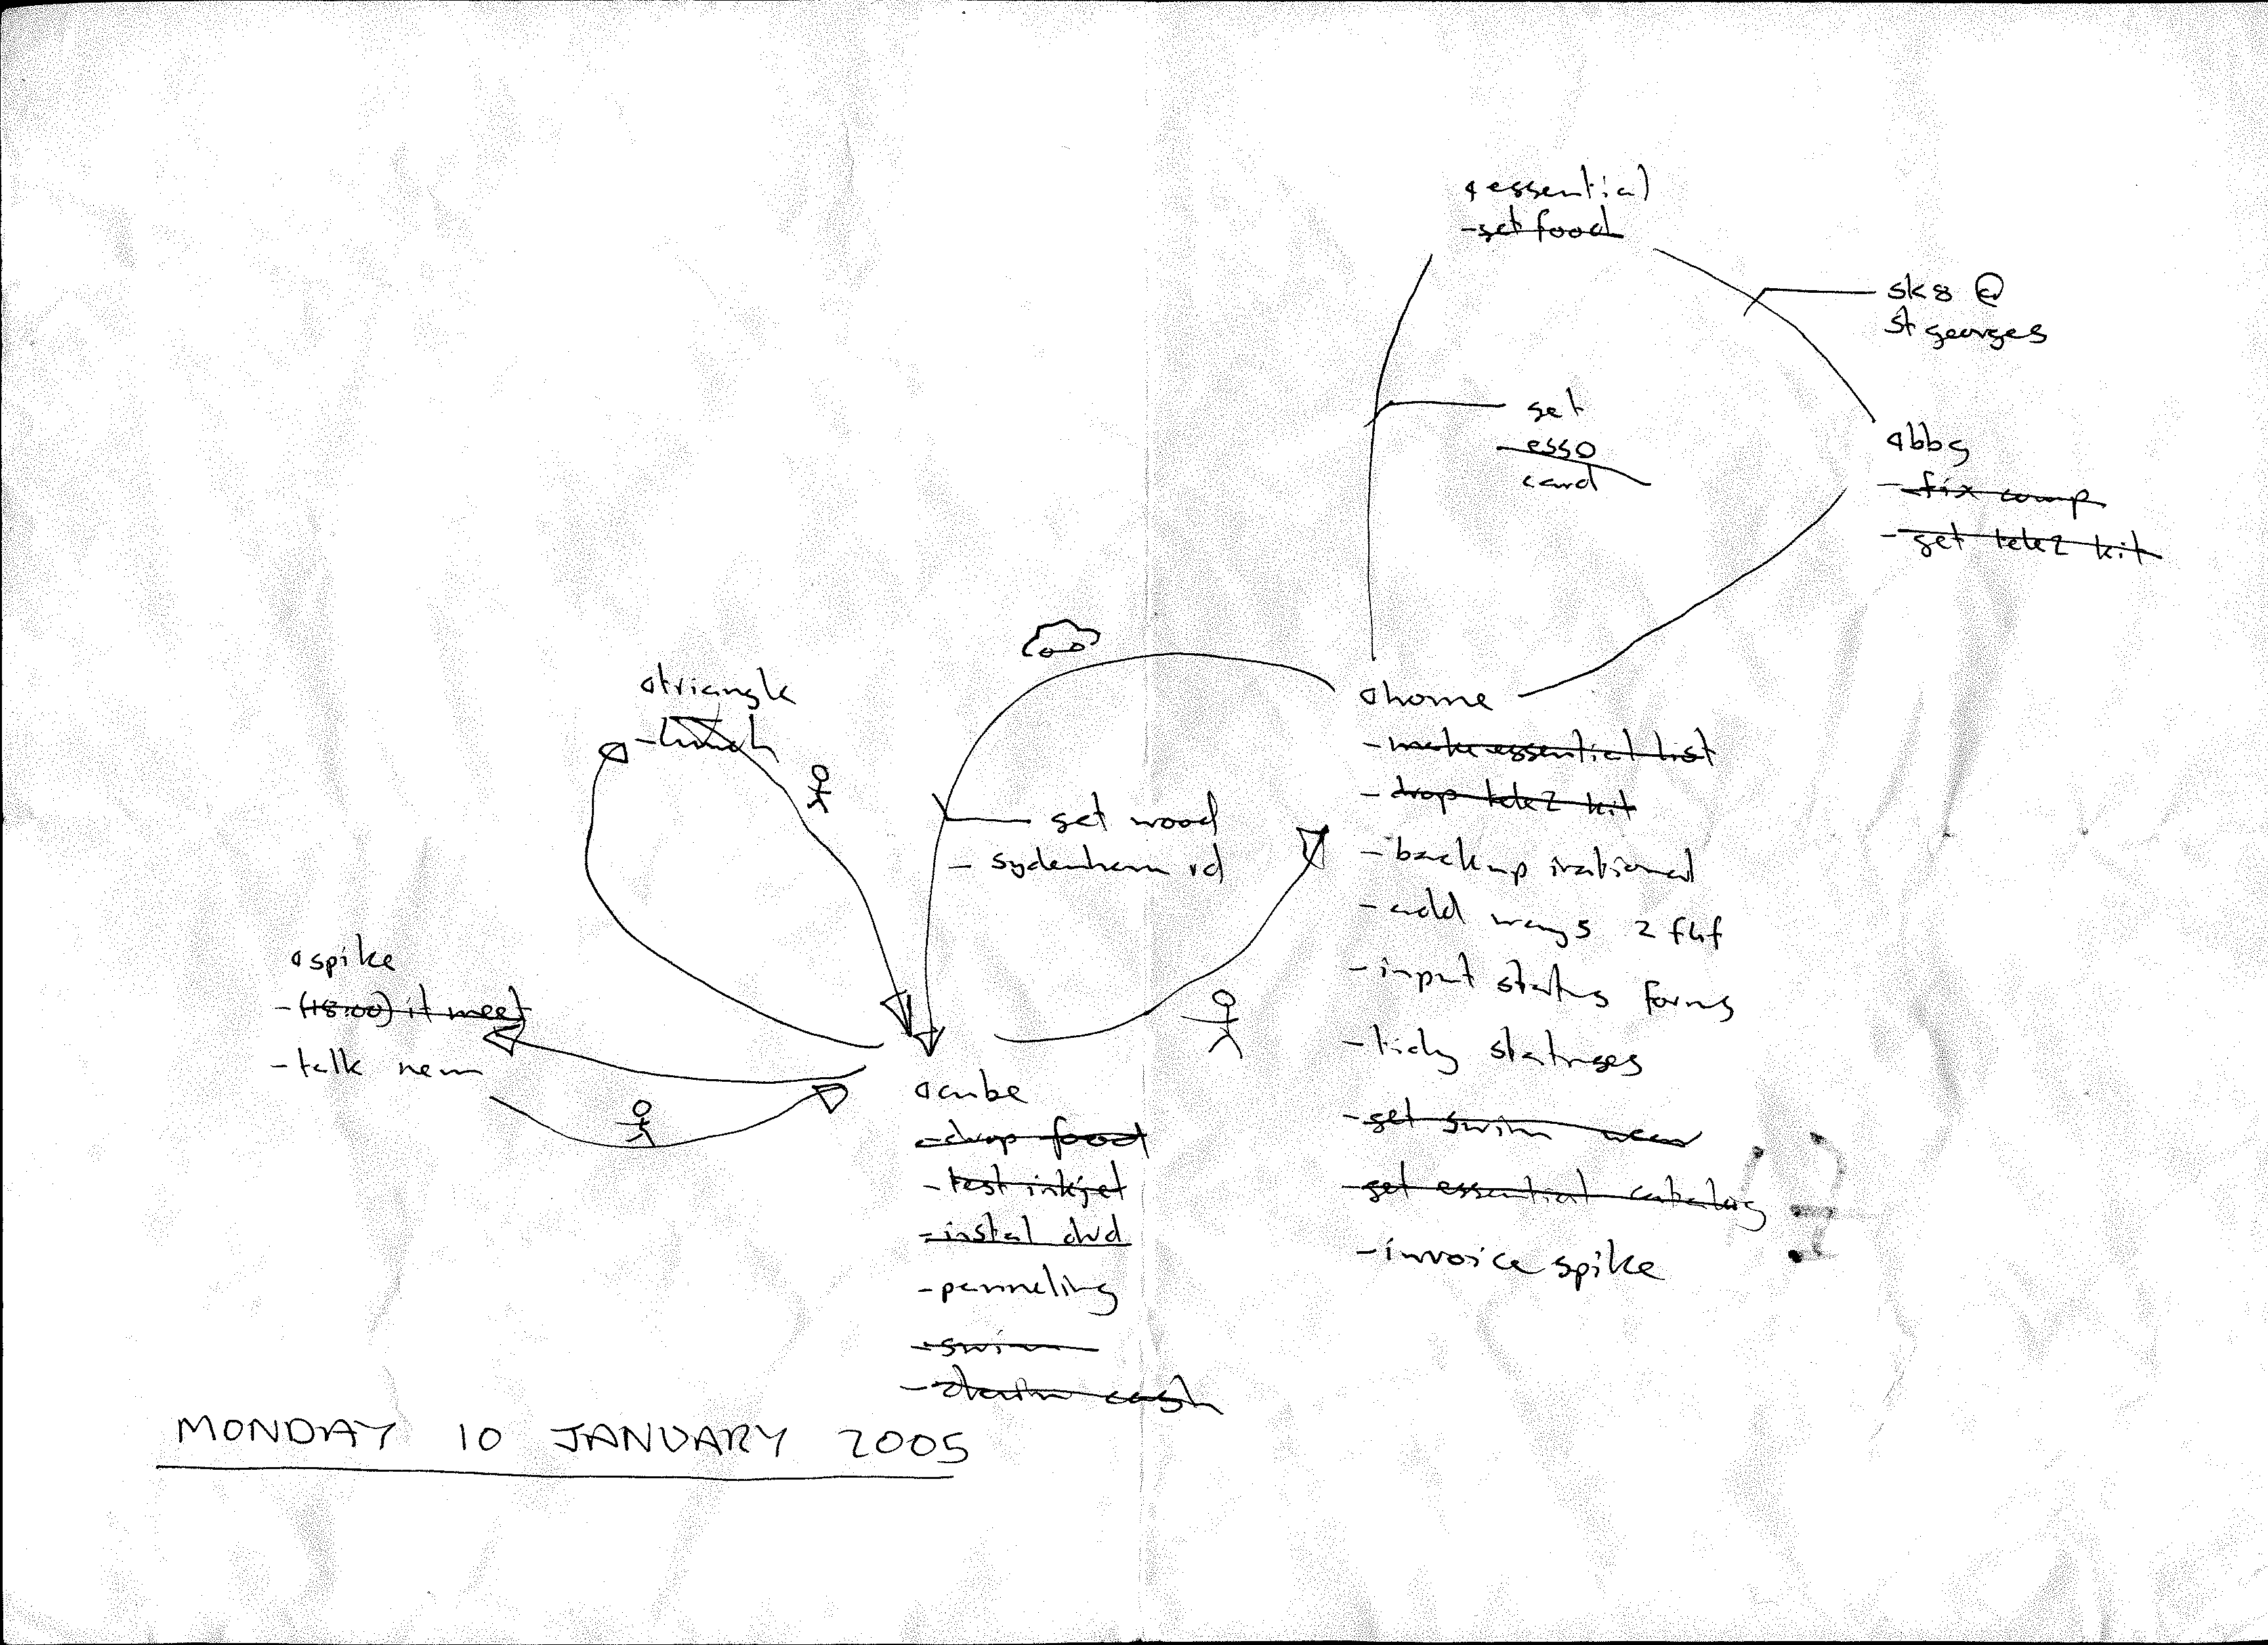 essential
- get food
sk8 @
st georges
get
esso
card
bbg
- fix comp
- get tele2 kit
home
- make essential list
- drop tele2 kit
- backup irational
- add ways 2 fhf
- input status forms
- tidy statuses
- get swim wear
- get essential catalog
- invoice spike
triangle
- lunch
get wood
- sydenham rd
spike
- (18:00) it meet
- talk new
cube
- drop food
- test inkjet
- instal dvd
- panneling
- swim
- claim cash
MONDAY 10 JANUARY 2005